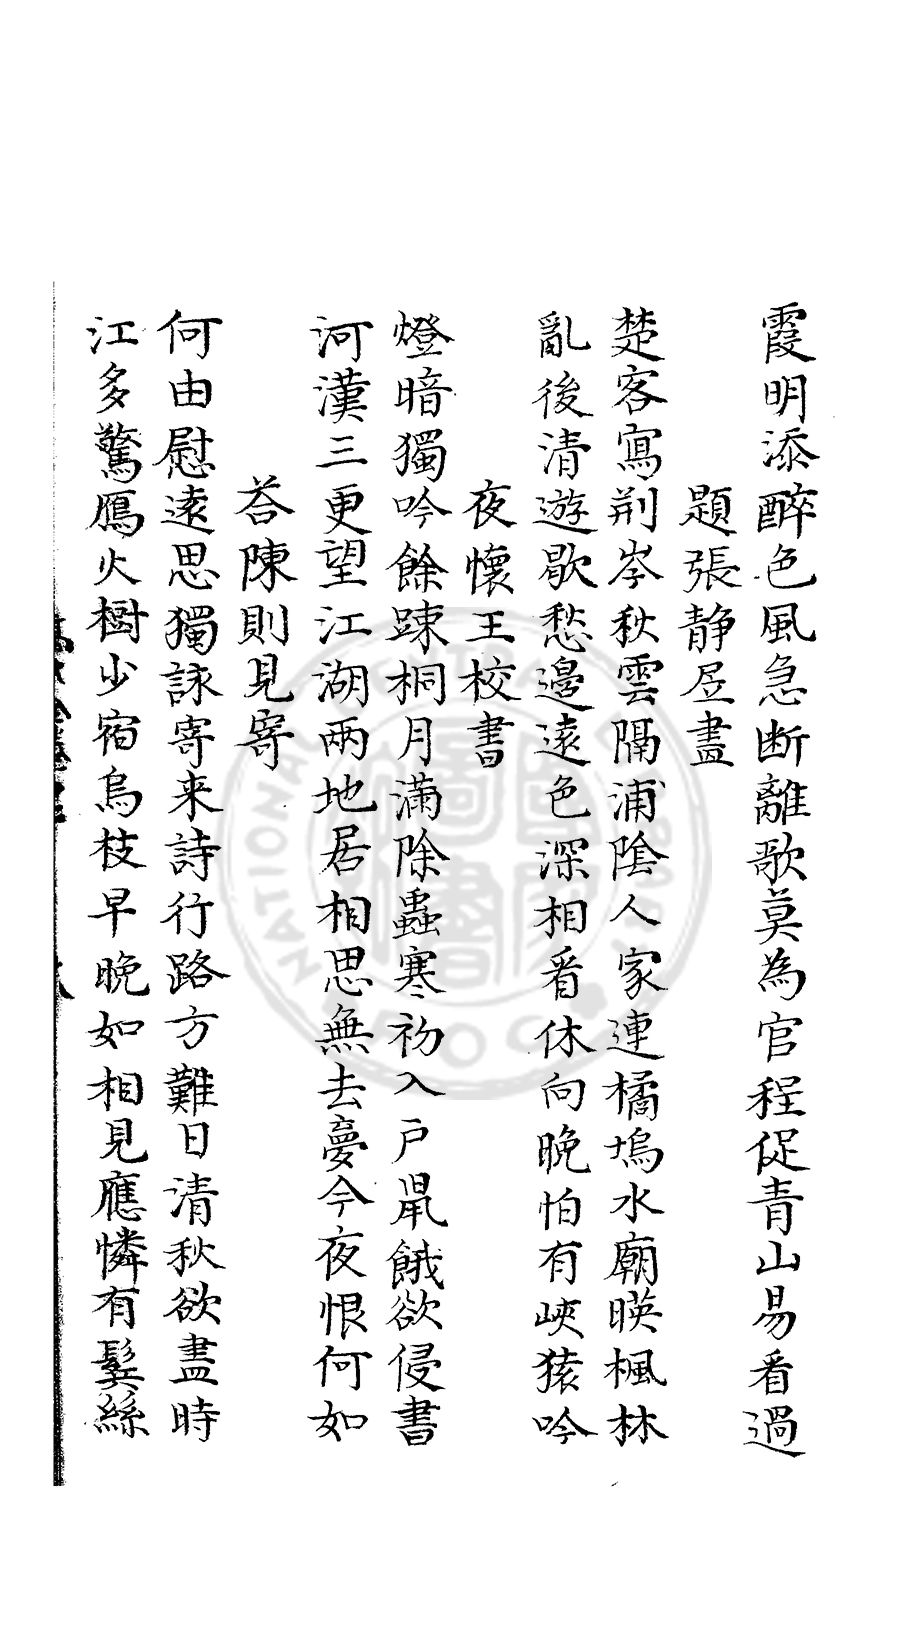 霞明添醉色風急断離歌莫為官程促青山易看過
題張静居畫
楚客寫荆岑秋雲隔浦陰人家連橘塢水廟暎楓林
亂後清遊歇愁邊遠色深相看休向晚怕有峽猿吟
夜懷王校書
燈暗獨吟餘踈桐月滿除蟲寒初入戸鼠餓欲侵書
河漢三更望江湖兩地居相思無去夢今夜恨何如
荅陳則見寄
何由慰遠思獨詠寄来詩行路方難日清秋欲盡時
江多驚鴈火樹少宿烏枝早晚如相見應憐有鬓絲
NATIONAL CENTRAL